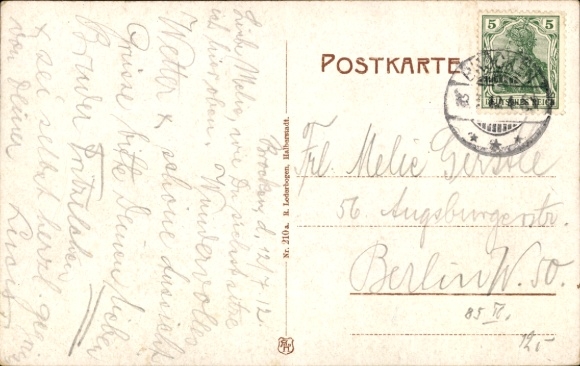 POSTKARTE
5 5
DEUTSCHES REICH
BROCKEN
Brocken, d. 12/7.12.
Liebe Melie, wie Du siehst sitze
ich hier oben. Wundervolles
Wetter & schöne Aussicht
Grüsse bitte Deinen lieben
Bruder
& sei selbst herzl. gegr.
von Deiner
Nr. 210 a. R. Lederbogen, Halberstadt.
Frl. Melie
56 Augsburgerstr.
Berlin W. 50.
85 II.
12,-